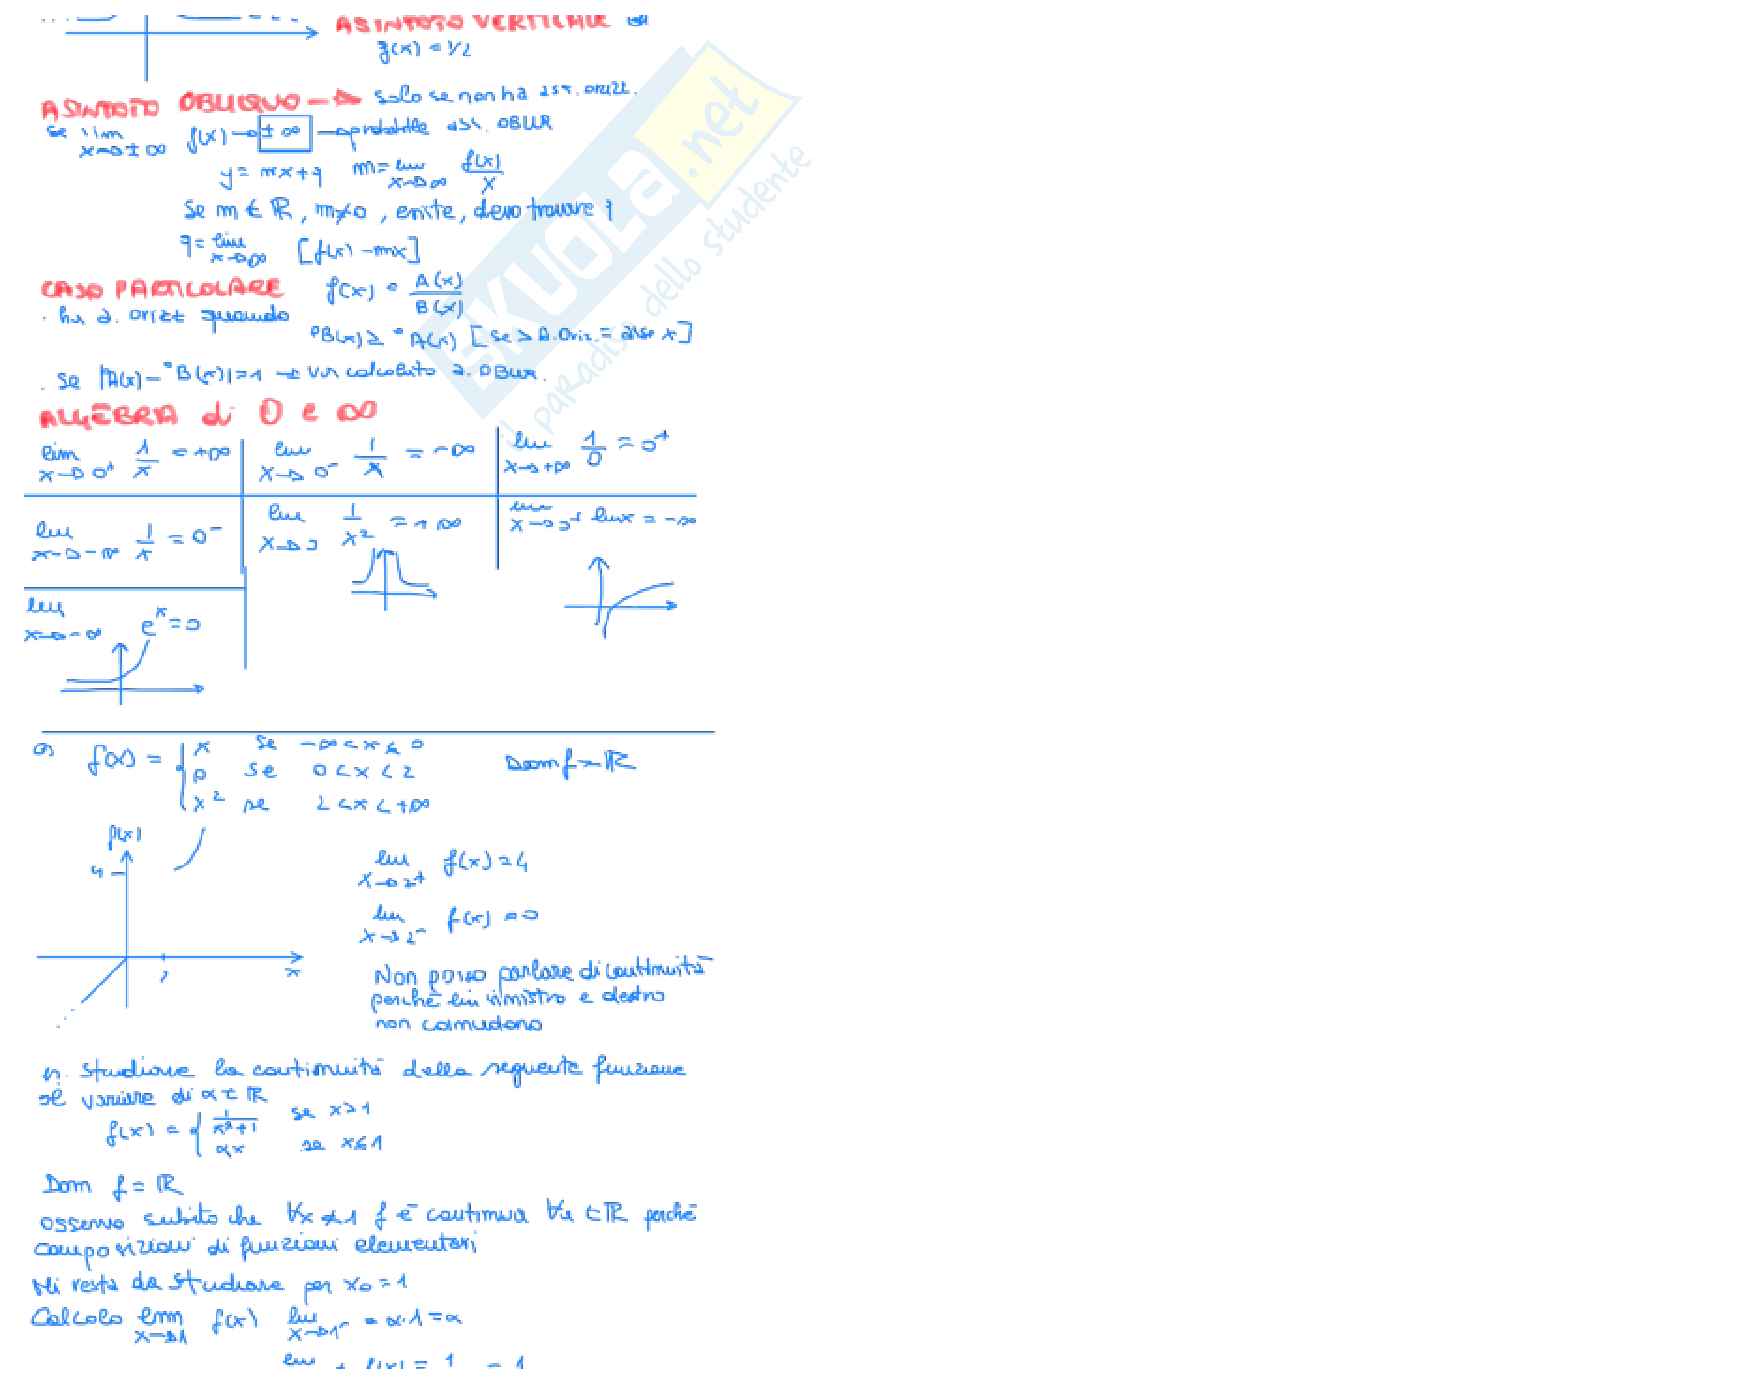 ASINTOTO VERTICALE
f(x) = 1/2
ASINTOTO OBLIQUO → solo se non ha ass. orizz.
se lim x→±∞ f(x) → ±∞ → probabile ass. OBLIQ
y = mx+q m = lim x→∞ f(x)/x
Se m ∈ R, m≠0, esiste, devo trovare q
q = lim x→∞ [f(x) - mx]
CASO PARTICOLARE f(x) = A(x)/B(x)
· ha a. orizz quando
°B(x) ≥ °A(x) [se > A.Oriz. = asse x]
. se |°A(x) - °B(x)| = 1 → va calcolato a. OBLIQ.
ALGEBRA di 0 e ∞
lim x→0⁺ 1/x = +∞ lim x→0⁻ 1/x = -∞ lim x→+∞ 1/0 = 0⁺
lim x→-∞ 1/x = 0⁻ lim x→0 1/x² = +∞ lim x→0⁺ lnx = -∞
lim x→-∞ eˣ = 0
f(x) = { x se -∞<x≤0 Dom f = R
0 se 0<x<2
x² se 2<x<+∞
f(x)
4
lim x→2⁺ f(x) = 4
lim x→2⁻ f(x) = 0
x
Non posso parlare di continuità
perchè lim sinistro e destro
non coincidono
es. Studiare la continuità della seguente funzione
al variare di α ∈ R
f(x) = { 1/(x²+1) se x>1
αx se x≤1
Dom f = R
osservo subito che ∀x≠1 f è continua ∀α ∈ R perchè
composizioni di funzioni elementari
Mi resta da studiare per x₀ = 1
Calcolo lim x→1 f(x) lim x→1⁻ = α·1 = α
lim f(x) = 1 = 1
SKUOLA.net
il paradiso dello studente